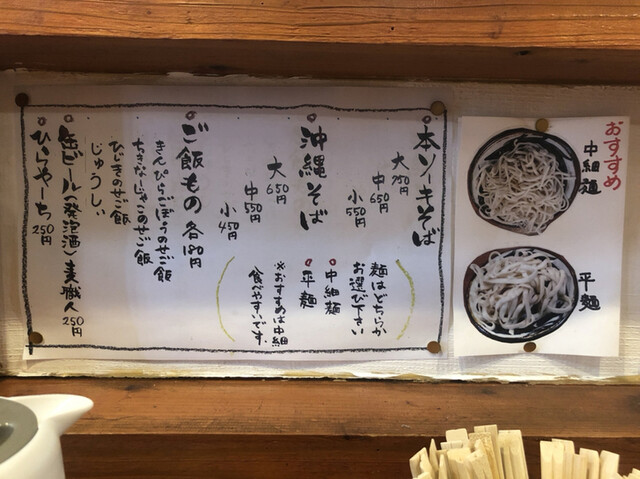 おすすめ
中細麺
平麺
本ソーキそば
大750円
中650円
小550円
麺はどちらか
お選び下さい
中細麺
平麺
※おすすめは中細
食べやすいです。
沖縄そば
大650円
中550円
小450円
ご飯もの 各180円
きんぴらごぼうのせご飯
ちきなーじゃこのせご飯
ひじきのせご飯
じゅうしい
缶ビール(発泡酒)麦職人 250円
ひらやーち 250円